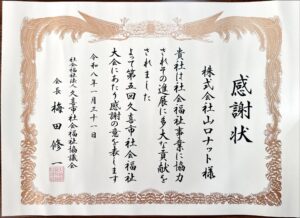 感謝状
株式会社山口ナット様
貴社は社会福祉事業に協力
されその進展に多大な貢献を
されました
よって第五回久喜市社会福祉
大会にあたり感謝の意を表します
令和八年一月三十一日
社会福祉法人久喜市社会福祉協議会
会長 梅田修一